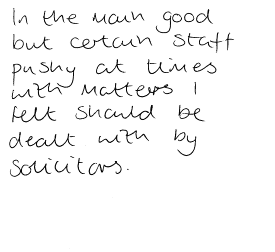 In the main good
but certain staff
pushy at times
with matters I
felt should be
dealt with by
solicitors.